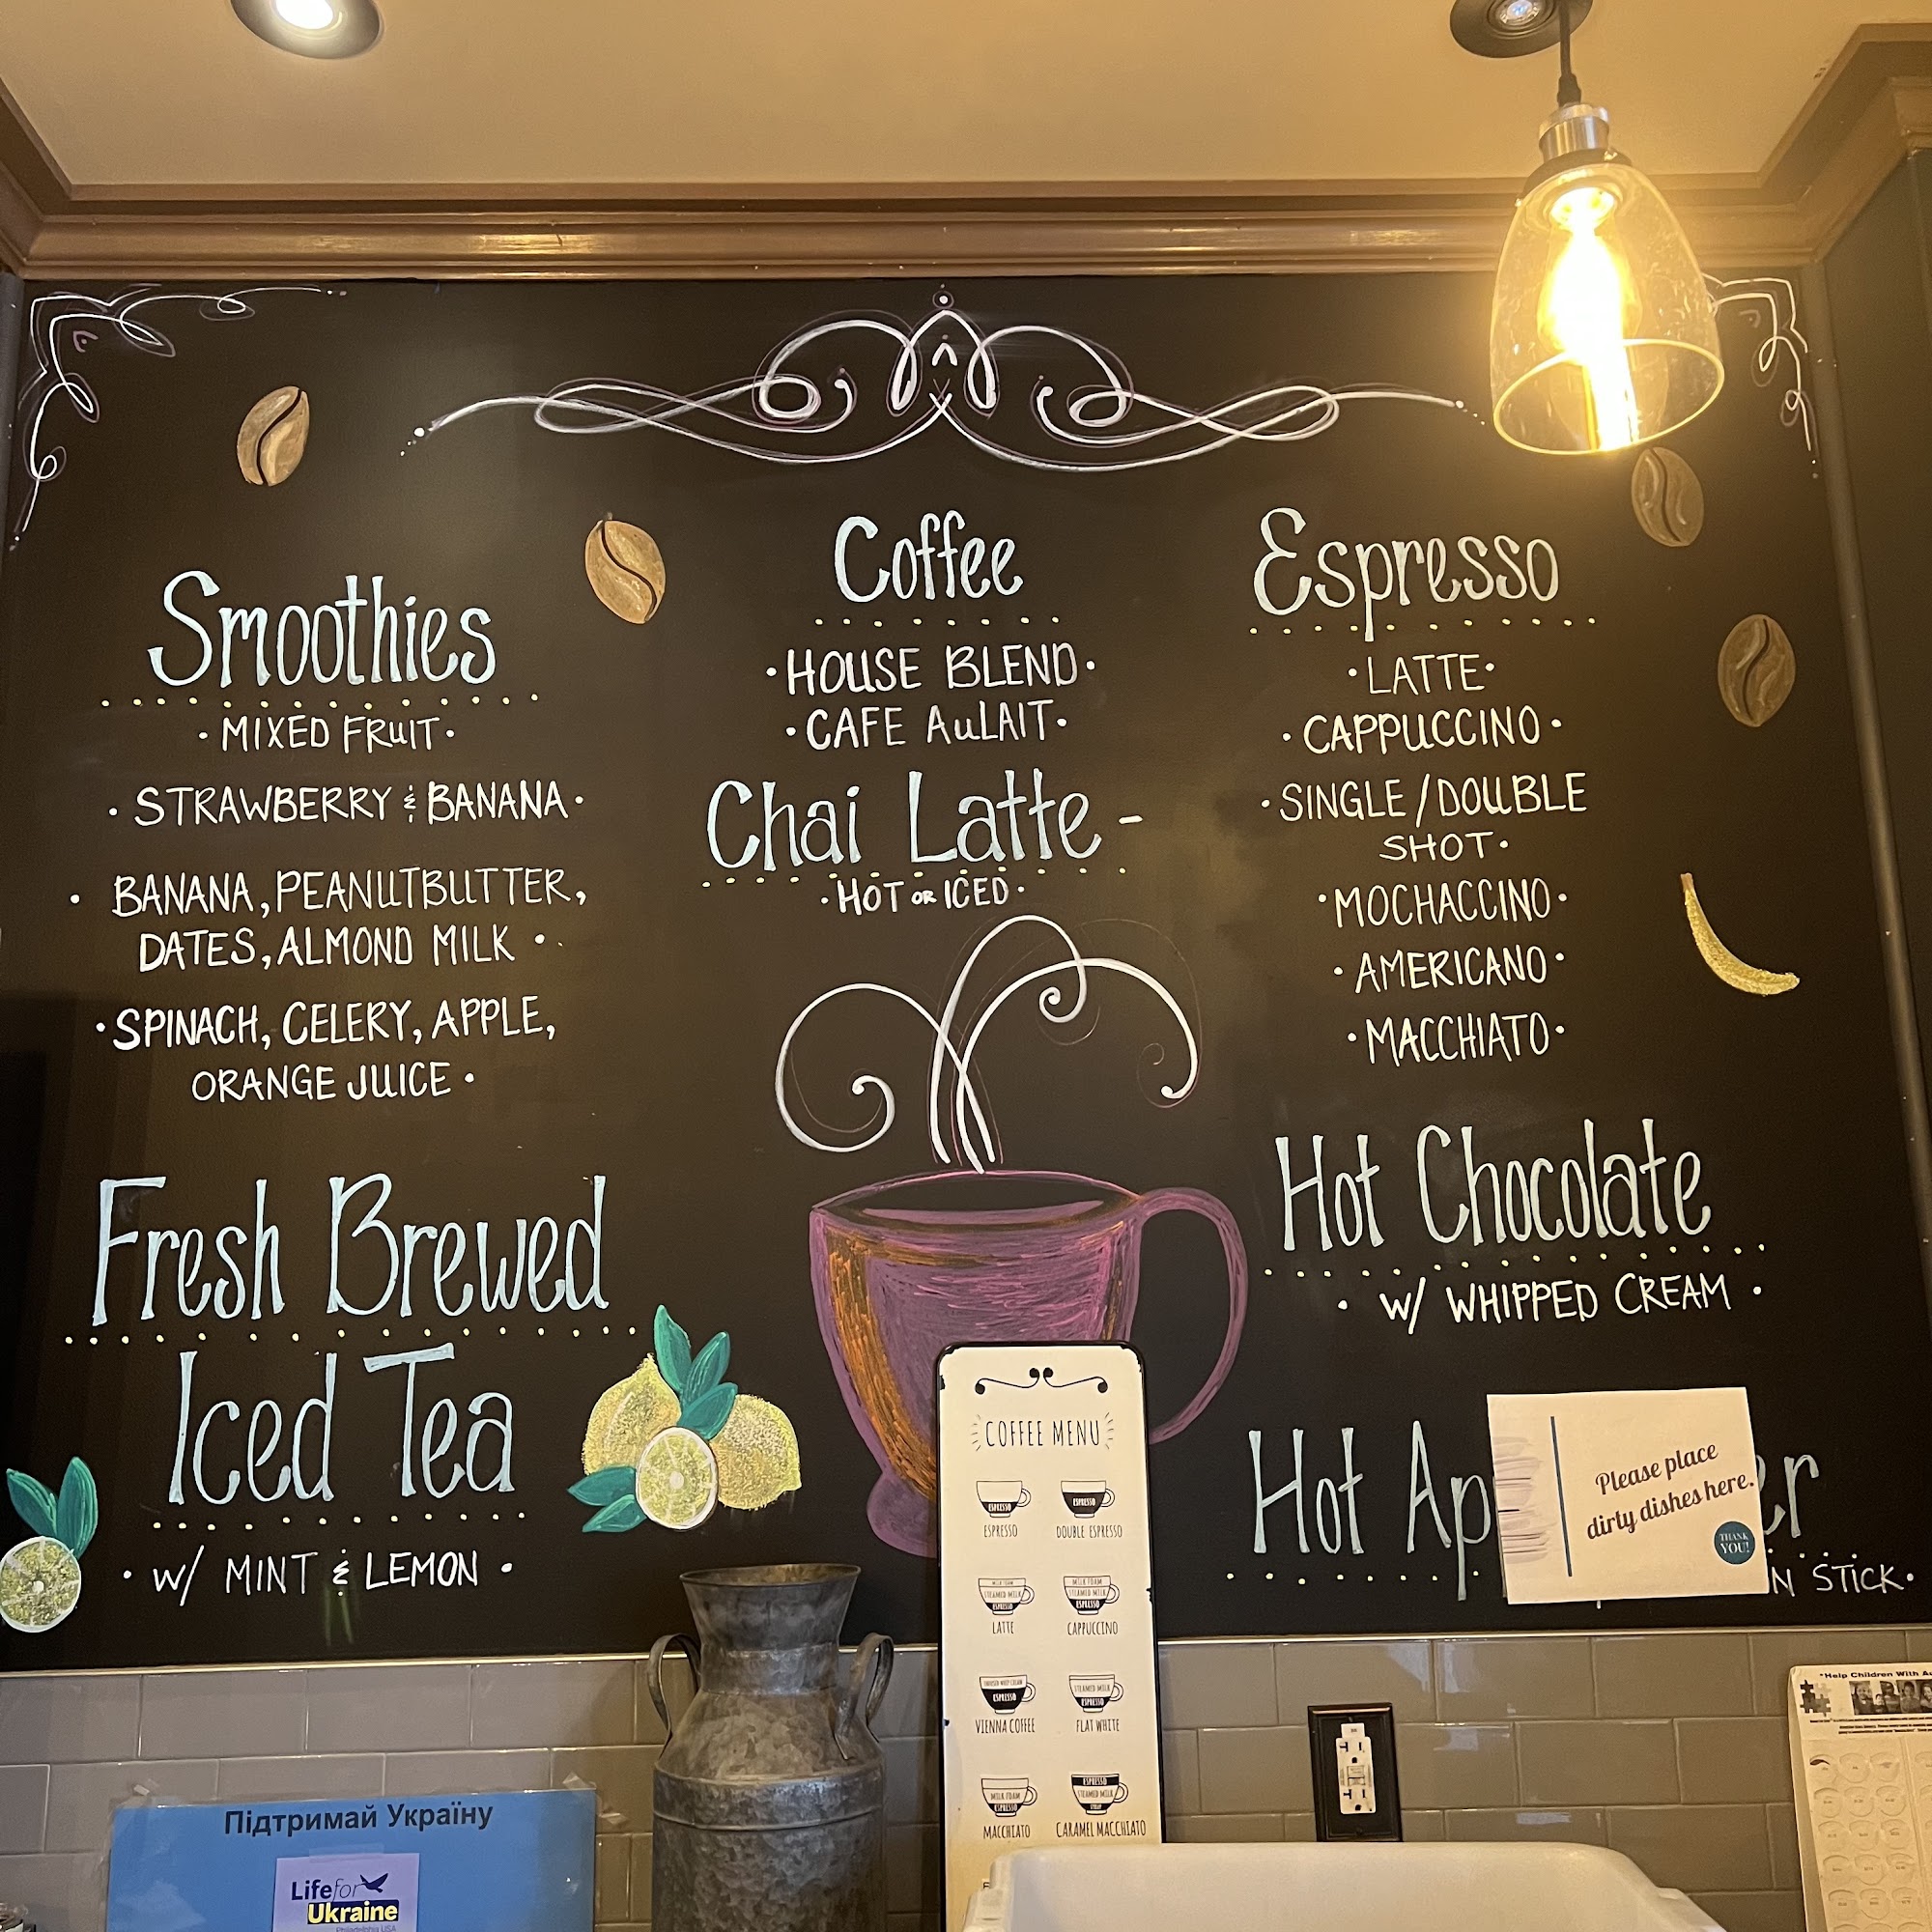 Smoothies
• MIXED FRUIT •
• STRAWBERRY & BANANA •
• BANANA, PEANUTBUTTER,
DATES, ALMOND MILK •
• SPINACH, CELERY, APPLE,
ORANGE JUICE •
Fresh Brewed
Iced Tea
• W/ MINT & LEMON •
Coffee
• HOUSE BLEND •
• CAFE AuLAIT •
Chai Latte -
• HOT OR ICED •
Espresso
• LATTE •
• CAPPUCCINO •
• SINGLE / DOUBLE
SHOT •
• MOCHACCINO •
• AMERICANO •
• MACCHIATO •
Hot Chocolate
• W/ WHIPPED CREAM •
Hot Ap er
N STICK •
Please place
dirty dishes here.
THANK
YOU!
COFFEE MENU
ESPRESSO
ESPRESSO
ESPRESSO
DOUBLE ESPRESSO
MILK FOAM
STEAMED MILK
ESPRESSO
LATTE
MILK FOAM
STEAMED MILK
ESPRESSO
CAPPUCCINO
ESPRESSO
VIENNA COFFEE
STEAMED MILK
ESPRESSO
FLAT WHITE
MILK FOAM
ESPRESSO
MACCHIATO
ESPRESSO
STEAMED MILK
CARAMEL MACCHIATO
Підтримай Україну
Life for
Ukraine
Philadelphia USA
"Help Children With Au